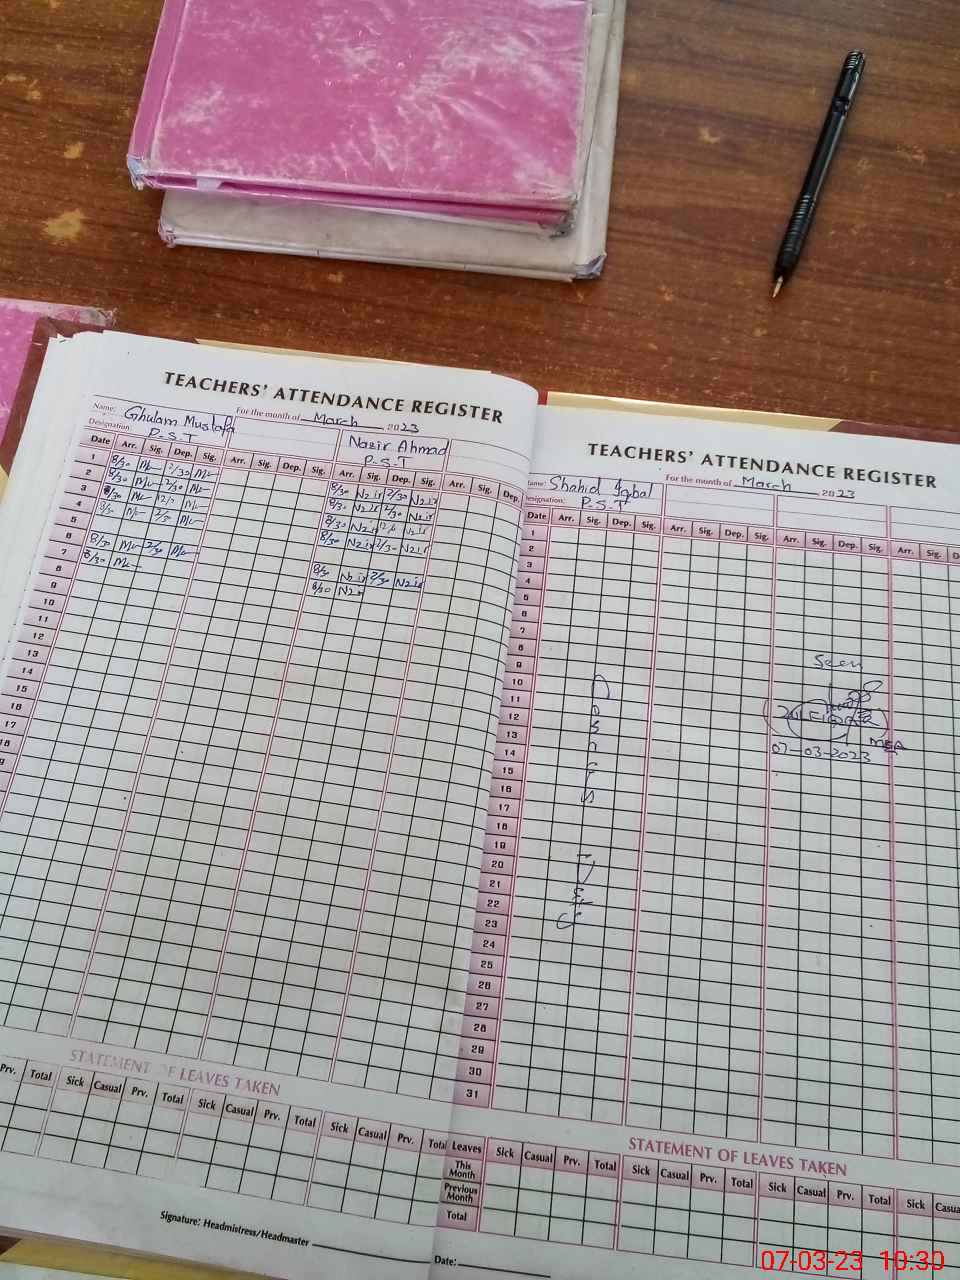 TEACHERS' ATTENDANCE REGISTER
Name: Ghulam Mustafa For the month of March 2023
Designation: P.S.T Nazir Ahmad
P.S.T
Date Arr. Sig. Dep. Sig. Arr. Sig. Dep. Sig. Arr. Sig. Dep. Sig. Arr. Sig. Dep.
1 8/30 2/30 8/30 2/30
2 8/30 2/30 8/30 2/30
3 8/30 8/30
4 8/30 2/30 8/30 2/30
5
6 8/30 2/30 8/30 2/30
7 8/30 8/30
8
9
10
11
12
13
14
15
16
17
18
STATEMENT OF LEAVES TAKEN
Prv. Total Sick Casual Prv. Total Sick Casual Prv. Total Sick Casual Prv. Total
Signature: Headmistress/Headmaster
TEACHERS' ATTENDANCE REGISTER
Name: Shahid Iqbal For the month of March 2023
Designation: P.S.T
Date Arr. Sig. Dep. Sig. Arr. Sig. Dep. Sig. Arr. Sig. Dep. Sig. Arr. Sig.
1
2
3
4
5
6
7
8
9
Seen
10
11
12
13
MEA
14
07-03-2023
15
16
17
18
19
20
21
22
23
24
25
26
27
28
29
30
31
STATEMENT OF LEAVES TAKEN
Leaves Sick Casual Prv. Total Sick Casual Prv. Total Sick Casual Prv. Total Sick
This Month
Previous Month
Total
Date:
07-03-23 10:30